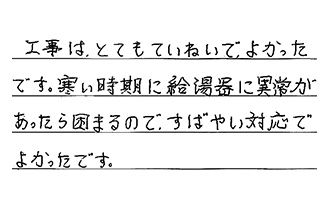 工事は、とてもていねいで、よかった
です。寒い時期に給湯器に異常が
あったら困まるので、すばやい対応で
よかったです。